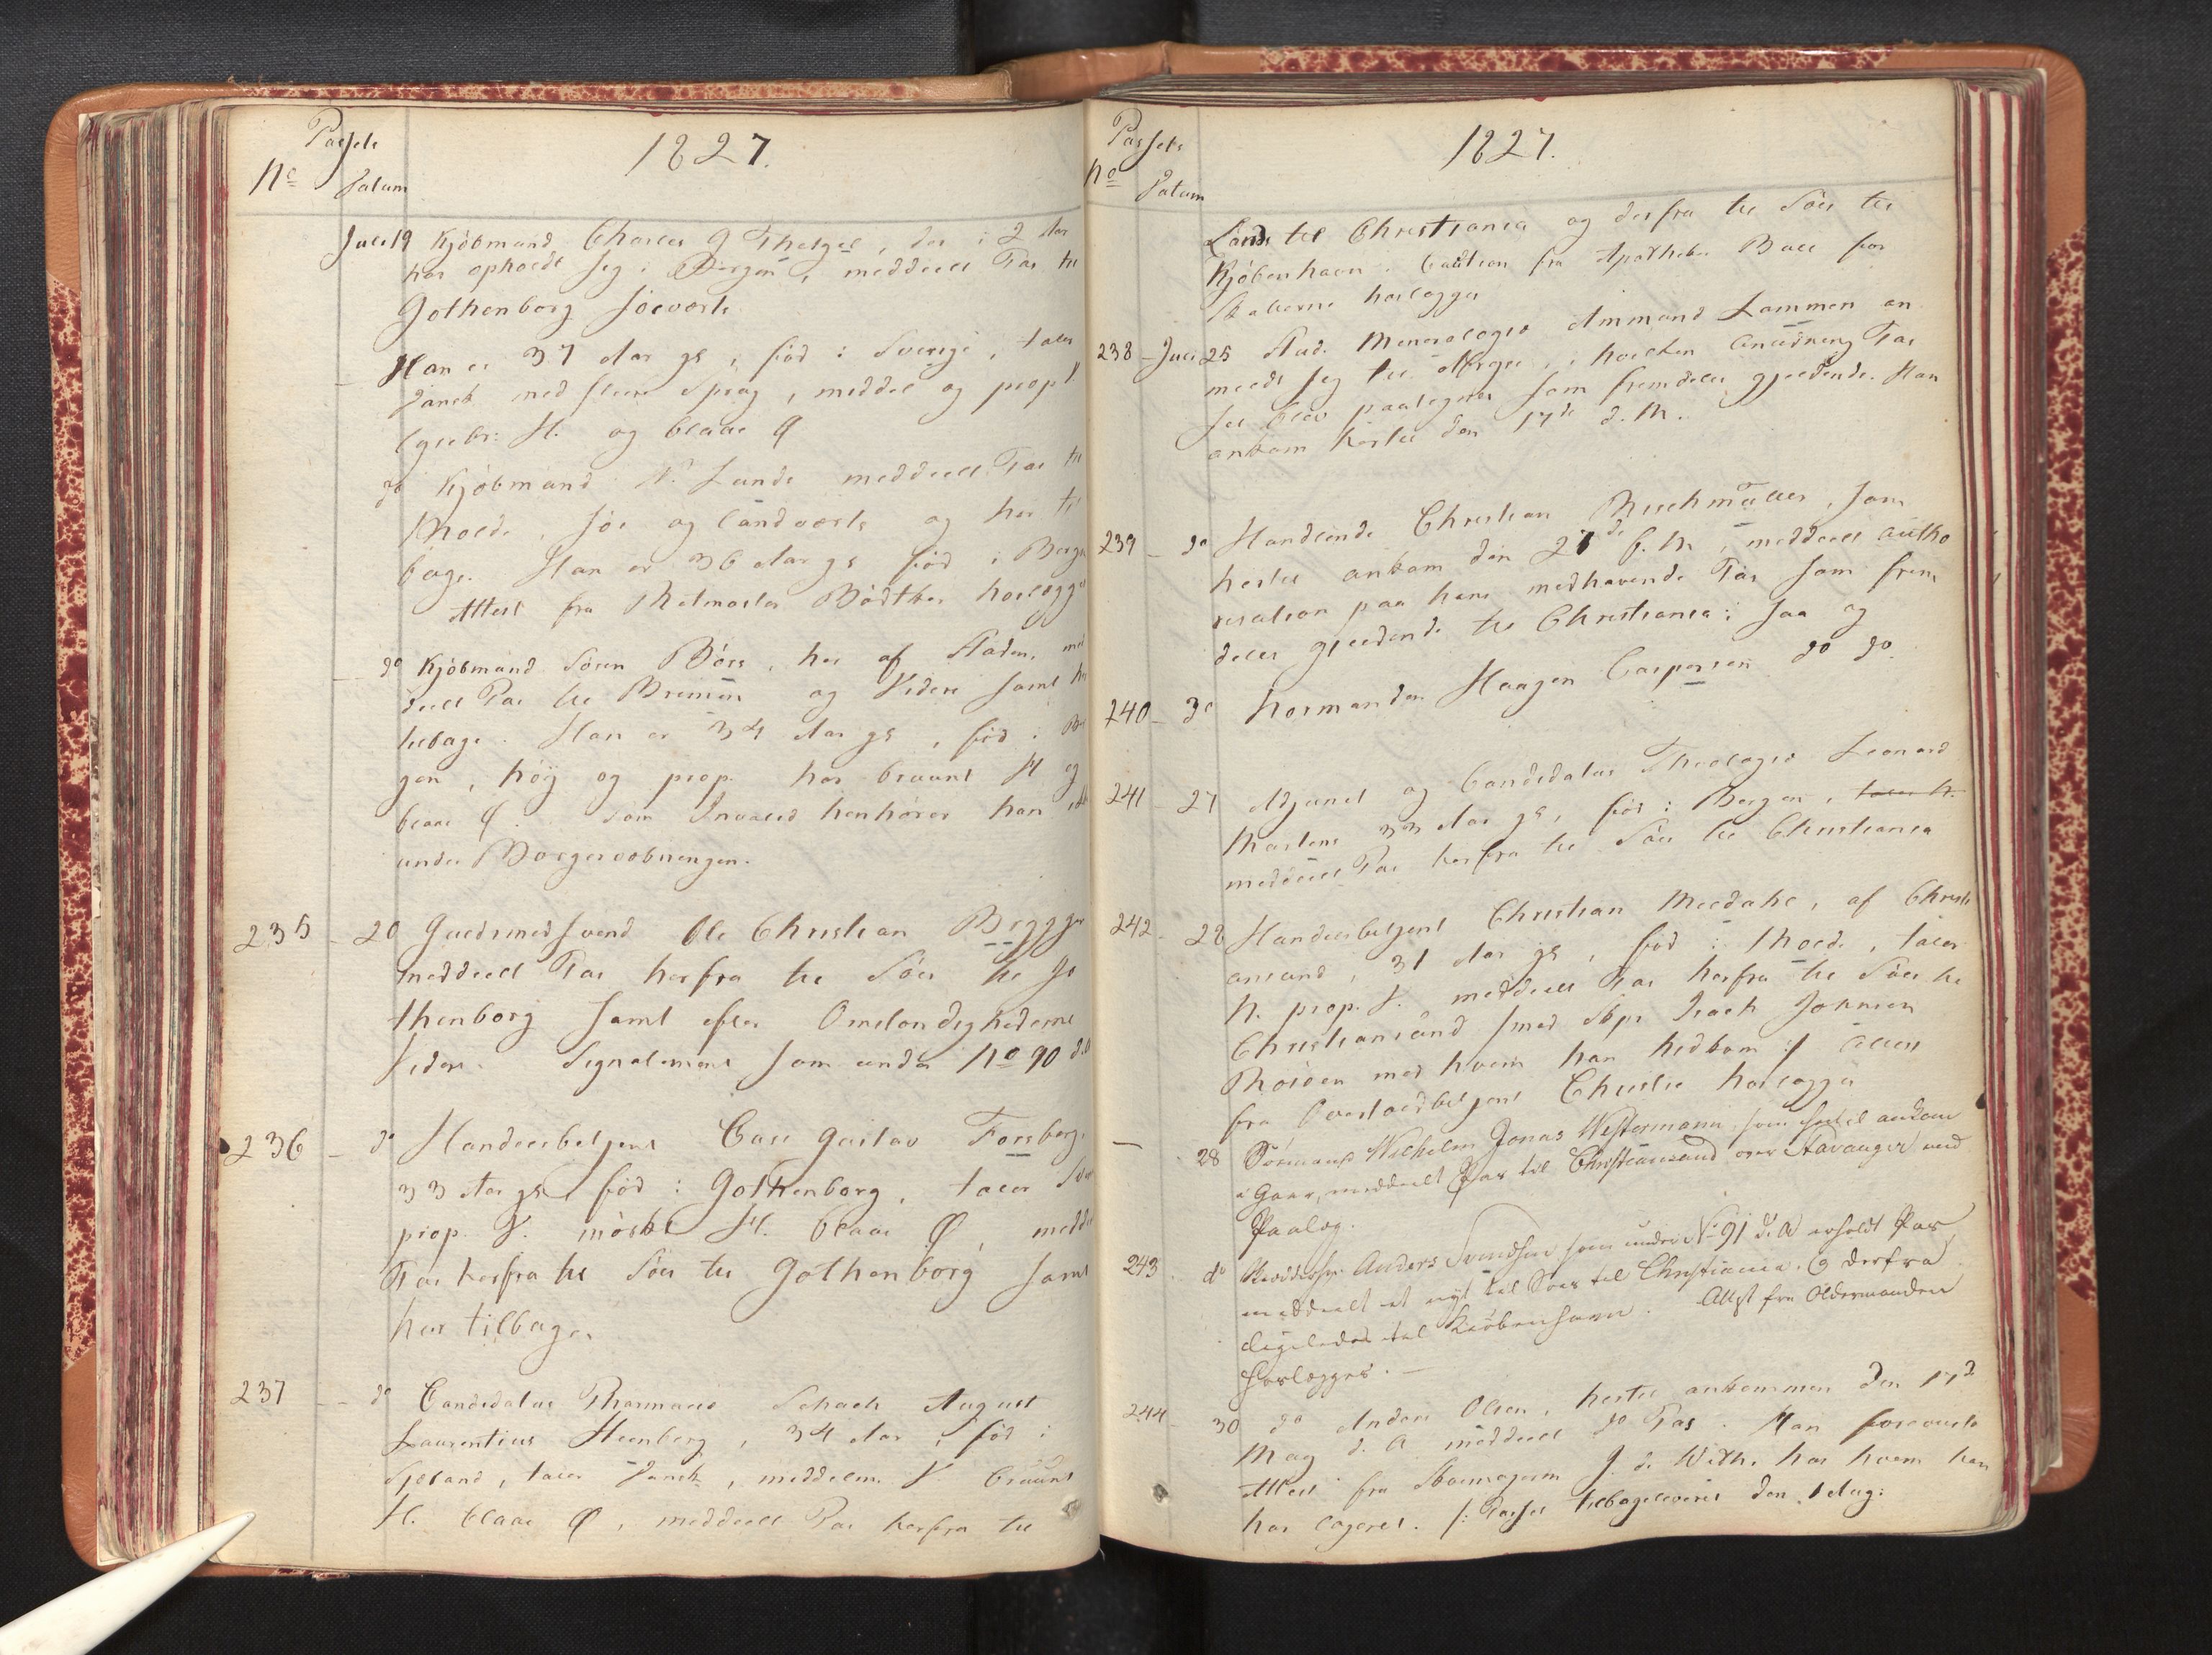 Passets
No Datum
1827.
Juli 19 Kjöbmand Charles G Thelgel, der i 2 Aar
har opholdt sig i Bergen, meddeelt Pas til
Gothenborg Söeværts
Han er 37 Aar gl, föd i Sverige, taler
Dansk med flere Sprog, middel og prop
lysebr: H. og blaae Ø
do Kjöbmand N. Lunde meddeelt Pas til
Molde, söe og landværts og her til
bage. Han er 36 Aar gl föd i Bergen
Attest fra Ritmester Bödtker hoslegges
do Kjöbmand Sören Börs, her af Staden, med
deelt Pas til Bremen og videre samt her
tilbage. Han er 34 Aar gl, föd i Ber
gen, höy og prop. har bruunt H og
blaae Ø. Som Invalid henhörer han ikke
under Borgervæbningen.
235 - 20 Guldsmedsvend Ole Christian Brygger
meddeelt Pas herfra til Söes til Go
thenborg samt efter Omstændighederne
videre. Signalement som under No 90 d. A
236 - do Handelsbetjent Carl Gustav Forsberg,
33 Aar gl, föd i Gothenborg, taler Sv
prop. V. mörkt H. blaae Ø, meddeelt
Pas herfra til Söes til Gothenborg samt
her tilbage.
237 - do Candidatus Pharmacio Schack August
Laurentius Steenberg, 34 Aar, föd i
Sjeland, taler Dansk, middelm. V. bruunt
H. blaae Ø, meddeelt Pas herfra til
Passets
No Datum
1827.
Lands til Christiania og derfra til Söes til
Kjöbenhavn. Caution fra Apotheker Bull for
Skatterne hoslegges
238 - Juli 25 Stud. Mineralogio Ammund Lammen an
meldt sig til Afreise, i hvilken Anledning Pas
set blev paategnet som fremdeles gjeldende. Han
ankom hertil den 17de d. M.
239 - do Handlende Christian Buschmüller, som
hertil ankom den 27de f. M, meddeelt autho
risation paa hans medhavende Pas som frem
deles gjeldende til Christiania: saa og
240 - do Normanden Haagen Caspersen do do
241 - 27 Adjunct og Candidatus Theologio Leonard
Martens 33 Aar gl, föd i Bergen, taler N.
meddeelt Pas herfra til Söes til Christiania
242 - 28 Handelsbetjent Christian Meldahl, af Christi
ansand, 31 Aar gl, föd i Molde, taler
N. prop. V. meddeelt Pas herfra til Söes til
Christiansand /: med Skpr Isach Johnsen
Roiden med hvem han hidkom :/ Attest
fra Overtoldbetjent Christie hoslegges
- 28 Sörmand Wilhelm Jonas Westermann, som hertil ankom
i Gaar, meddeelt Pas til Christiansand over Stavanger med
Paalæg.
243 do Anders Svendsen som under No 91 d. A erholdt Pas
meddeelt et nyt til Söes til Christiania og derfra
ligeledes til Kiöbenhavn. Attest fra Oldermanden
hoslegges. —
244 - 30 do Anders Olsen, hertil ankommen den 17d
May d. A meddeelt do Pas. Han foreviiste
Attest fra Skomagerm J. d. With. hos hvem han
har logeret. /: Passet tilbageleveret den 1 Aug: